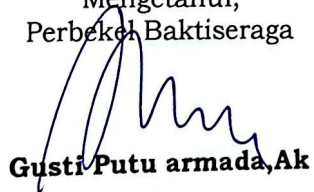 Mengetahui,
Perbekel Baktiseraga
Gusti Putu armada,Ak